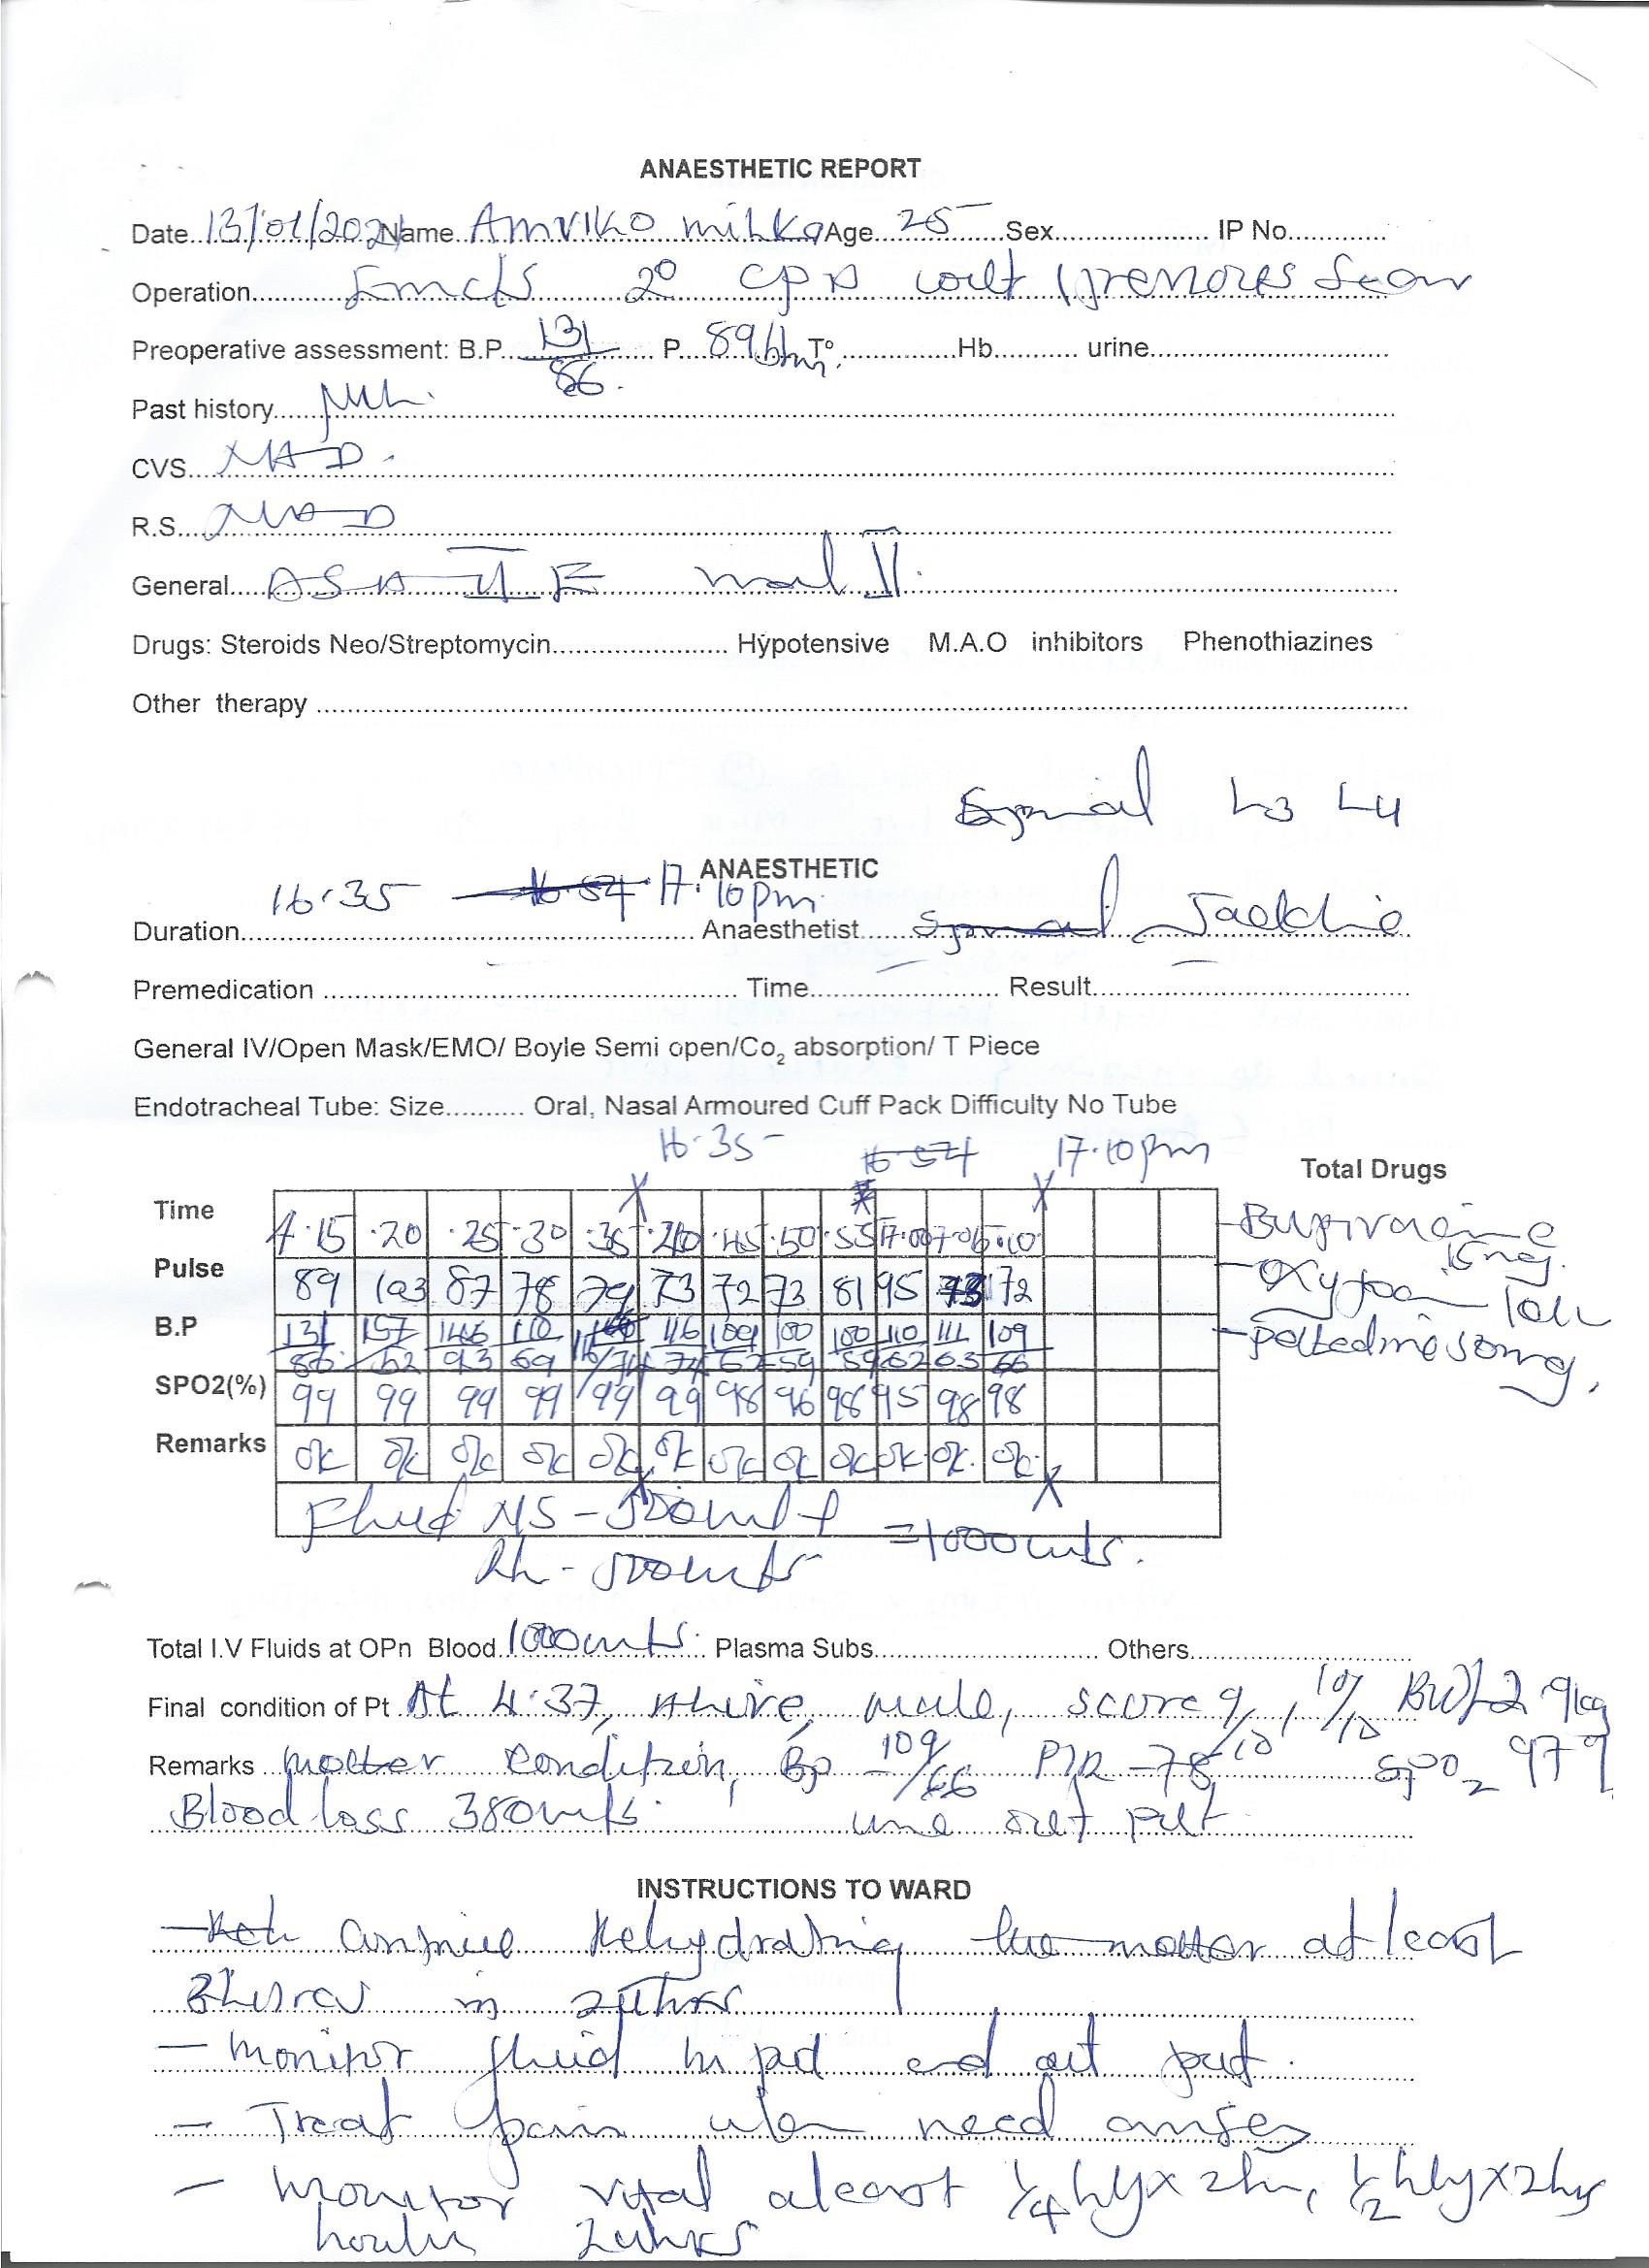 ANAESTHETIC REPORT
Date 13/01/2021 Name Amviko milka Age 25 Sex IP No
Operation Emcls 2° CPD with 1 previous scar
Preoperative assessment: B.P 131/86 P 89b/m T° Hb urine
Past history Nil.
CVS NAD.
R.S NAD
General ASA II E mal II.
Drugs: Steroids Neo/Streptomycin Hypotensive M.A.O inhibitors Phenothiazines
Other therapy
Spinal L3 L4
ANAESTHETIC
Duration 16.35 — 16.54 17.10pm Anaesthetist Spinal Jackie
Premedication Time Result
General IV/Open Mask/EMO/ Boyle Semi open/Co2 absorption/ T Piece
Endotracheal Tube: Size Oral, Nasal Armoured Cuff Pack Difficulty No Tube
16.35 16.54 17.10pm
Total Drugs
Time 4.15 .20 .25 .30 .35 .40 .45 .50 .55 17.00 7.05 .10
Pulse 89 103 87 78 79 73 72 73 81 95 73 72
B.P 131/86 157/62 146/93 110/69 116/74 116/74 109/62 100/59 100/59 110/62 111/63 109/66
SPO2(%) 99 99 99 99 99 99 98 96 98 95 98 98
Remarks ok ok ok ok ok ok ok ok ok ok ok. ok.
- Bupivacaine 15mg.
- Oxytocin 10iu
- pethedine 50mg.
Fluid N/S - 500ml +
RL - 500mls = 1000mls.
Total I.V Fluids at OPn Blood 1000mls. Plasma Subs Others
Final condition of Pt At 4:37, Alive, male, score 9/10, 10/10 BWt 2.9kg
Remarks mother condition, Bp - 109/66 P/R - 78 SPO2 97%
Blood loss 380mls. urine out put
INSTRUCTIONS TO WARD
- continue Rehydrating the mother at least
3 litres in 24hrs
- monitor fluid in put and out put.
- Treat pain when need arises
- monitor vital aleast 1/4 hly x 2hr, 1/2 hly x 2hrs
hourly 24hrs